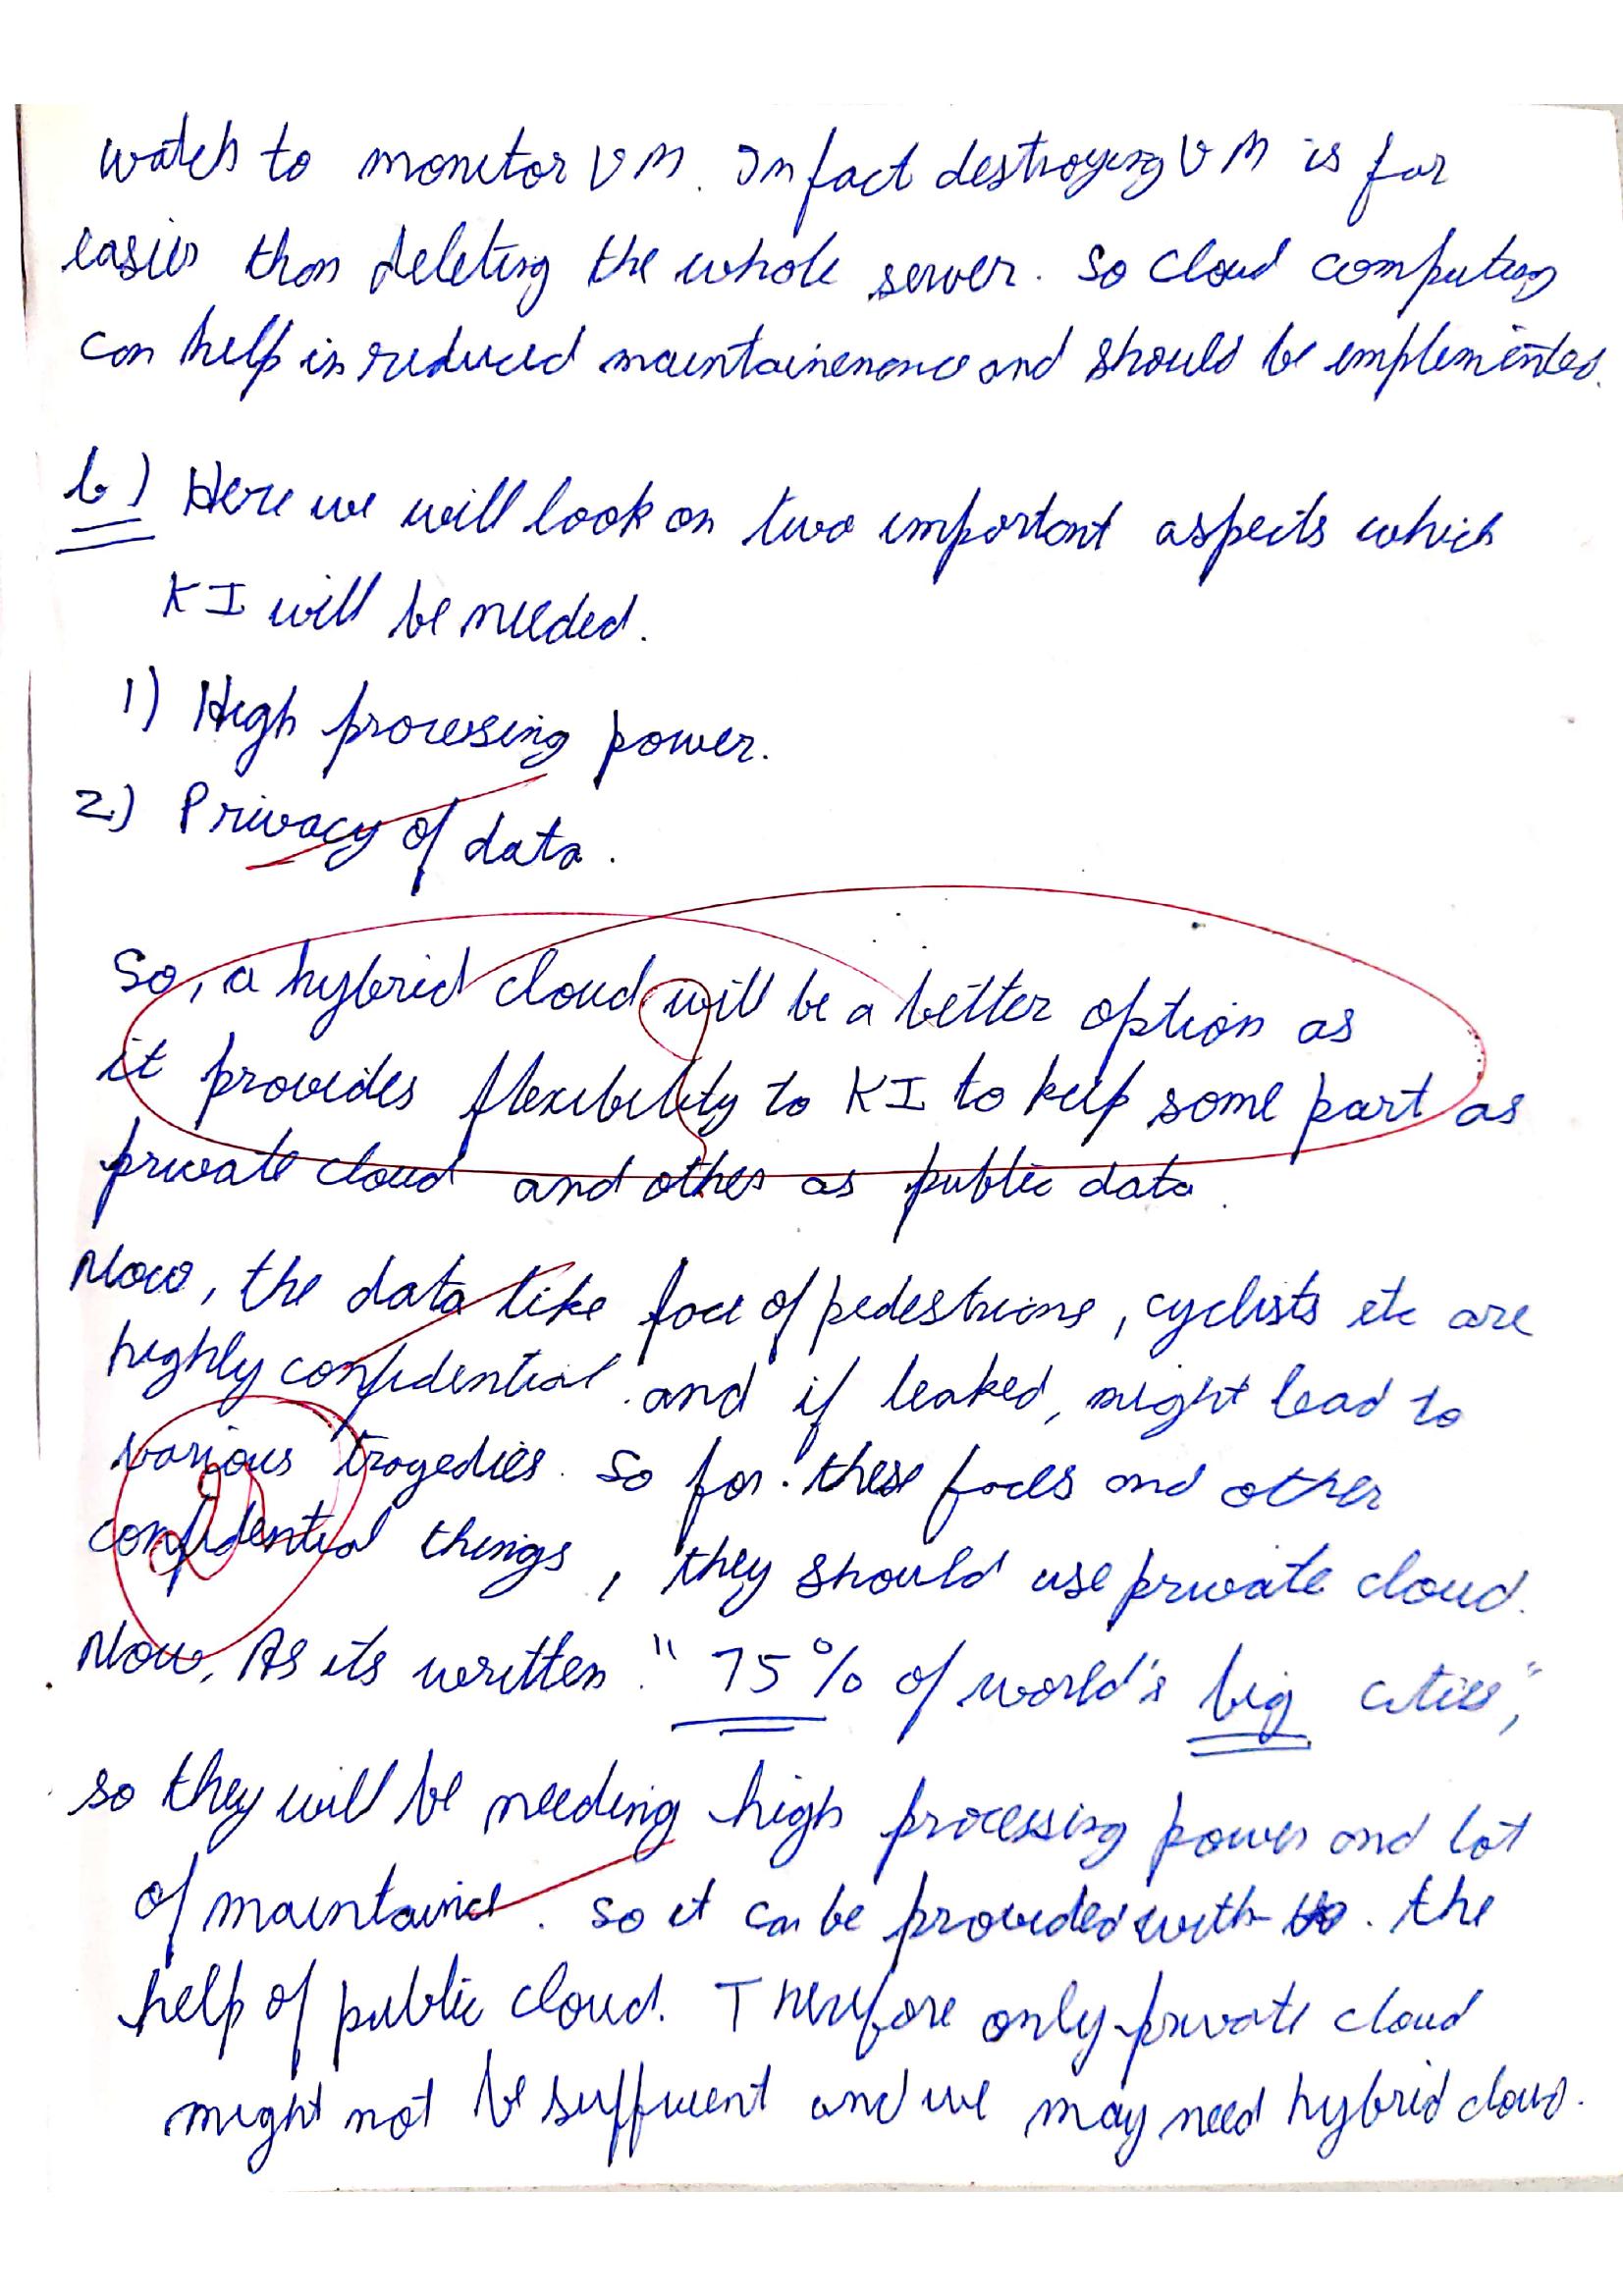 watch to monitor VM. In fact destroying VM is far
easier than deleting the whole server. So cloud computing
can help in reduced maintainenance and should be implemented.
b) Here we will look on two important aspects which
KI will be needed.
1) High processing power.
2) Privacy of data.
So, a hybrid cloud will be a better option as
it provides flexibility to KI to keep some part as
private cloud and other as public data.
Now, the data like face of pedestrians, cyclists etc are
highly confidential and if leaked, might lead to
various tragedies. So for these faces and other
confidential things, they should use private cloud.
Now, As its written "75% of world's big cities",
so they will be needing high processing power and lot
of maintaince. So it can be provided with the
help of public cloud. Therefore only private cloud
might not be sufficient and we may need hybrid cloud.